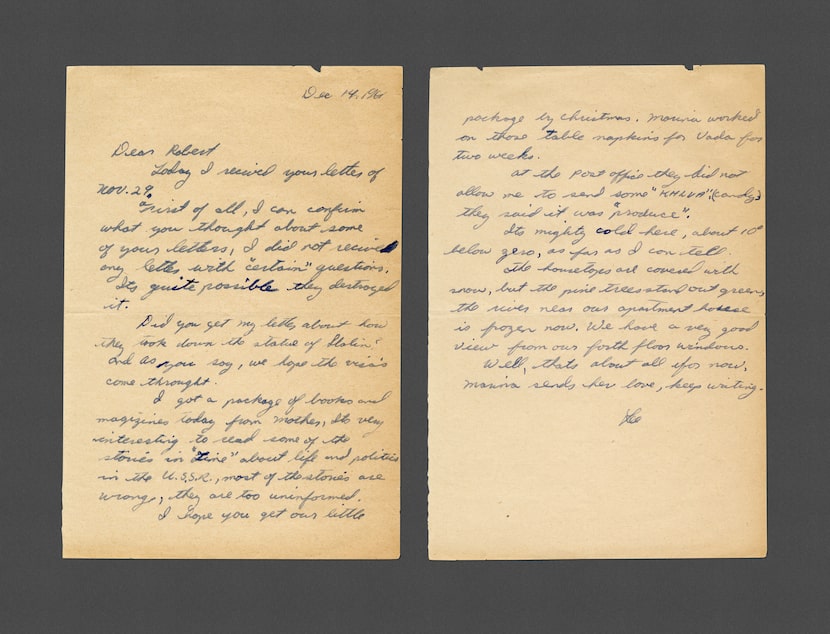 Dec 14, 1961
Dear Robert
Today I recived your letter of
Nov. 29.
First of all, I can confirm
what you thought about some
of your letters, I did not recived
any letter with "certain" questions.
Its quite possible they destroyed
it.
Did you get my letter about how
they took down the statue of Stalin?
and as you say, we hope the visa's
come throught.
I got a package of books and
magizines today from mother, Its very
interesting to read some of the
stories in "Time" about life and politics
in the U.S.S.R., most of the stories are
wrong, they are too uninformed.
I hope you get our little
package by christmas. Marina worked
on those table napkins for Vada for
two weeks.
At the Post office they did not
allow me to send some "KHLVA", (candy)
they said it was "produce".
Its mighty cold here, about 10°
below zero, as far as I can tell.
The housetopes are covered with
snow, but the pine trees stand out green,
the river near our apartment house
is frozen now. We have a very good
view from our forth floor windows.
Well, thats about all for now,
marina sends her love, keep writing.
Lee